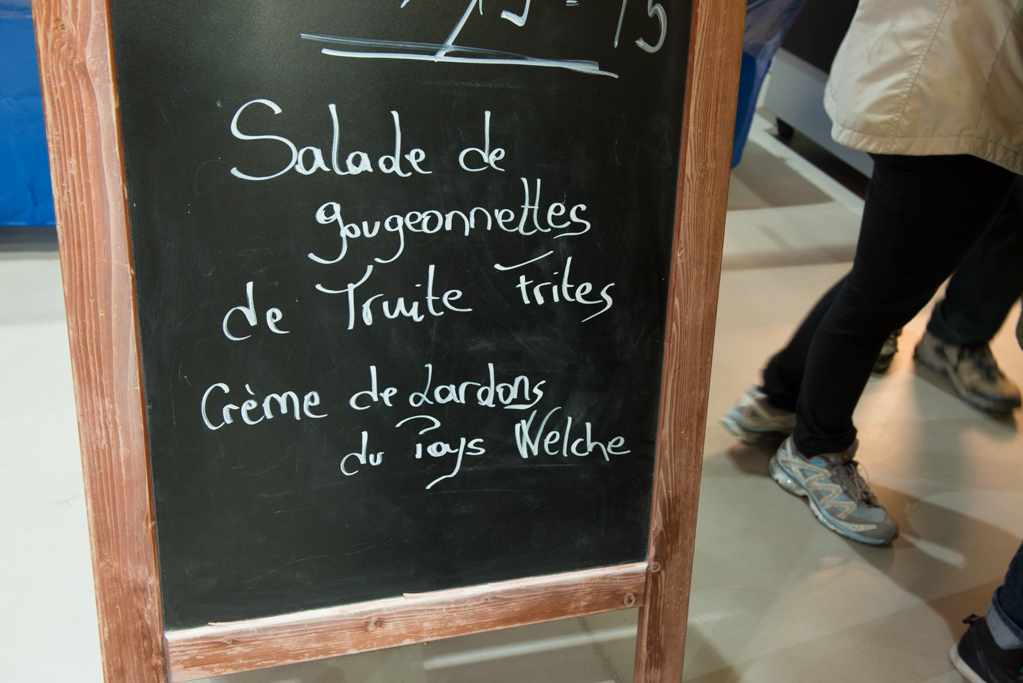 Salade de
gougeonnettes
de Truite Frites
Crème de Lardons
du Pays Welche